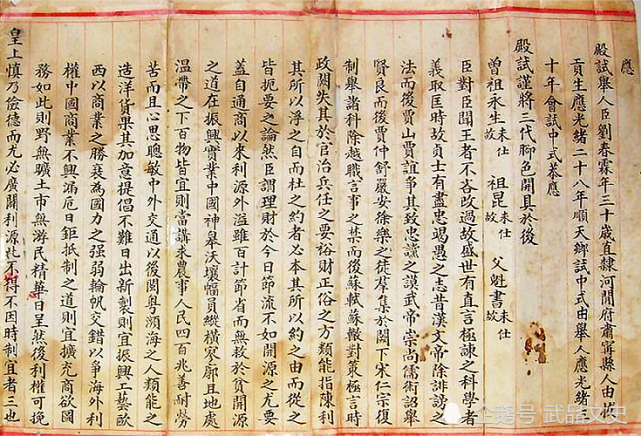 應
殿試舉人臣劉春霖年三十歲直隸河間府肅寧縣人由拔
貢生應光緒二十八年順天鄉試中式由舉人應光緒
十年會試中式恭應
殿試謹將三代腳色開具於後
曾祖永生未仕故 祖昆未仕故 父魁書未仕故
臣對臣聞王者不吝改過故盛世有直言極諫之科學者
義取匡時故貞士有盡忠竭愚之志昔漢文帝除誹謗之
法而後賈山賈誼爭其致忠讜之謨武帝崇尚儒術詔舉
賢良而後賈仲舒嚴安徐樂之徒羣集於闕下宋仁宗復
制舉諸科除越職言事之禁而後蘇軾蘇轍對策極言時
政闕失其於官治兵任之要裕財正俗之方類能指陳利
其所以浮之自而杜之約者必本其所以約之由而從之
皆扼要之論然臣謂理財於今日節流不如開源之尤要
蓋自通商以來利源外溢雖百計節省而無救於貧開源
之道在振興實業中國神皋沃壤幅員縱橫寥廓且地處
溫帶之下百物皆宜則當講求農事人民四百兆善耐勞
苦而且心思聰敏中外交通以後閩粵瀕海之人類能之
造洋貨果其加意提倡不難日出新製則宜振興工藝歐
西以商業之勝衰為國力之强弱輪帆交錯以爭海外利
權中國商業不興漏卮日鉅抵制之道則宜擴充商欲國
務如此則野無曠土市無游民精華日呈然後利權可挽
皇上慎乃儉德而尤必廣開利源此不得不因時制宜者三也
企鹅号 武品文史